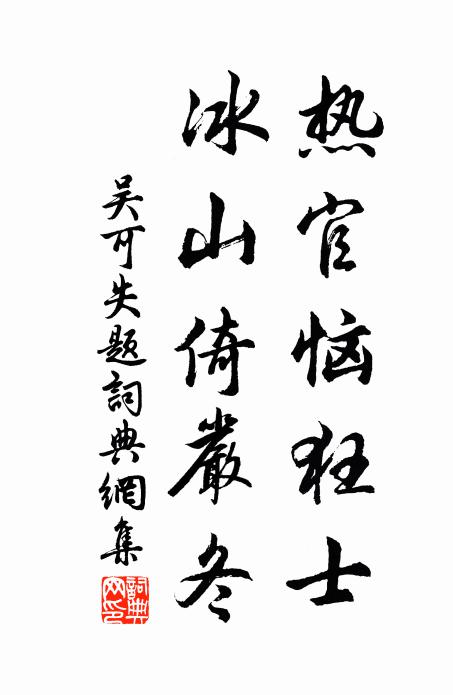 热官恼狂士
冰山倚嚴冬
吴可失题詞典網集
詞典网印